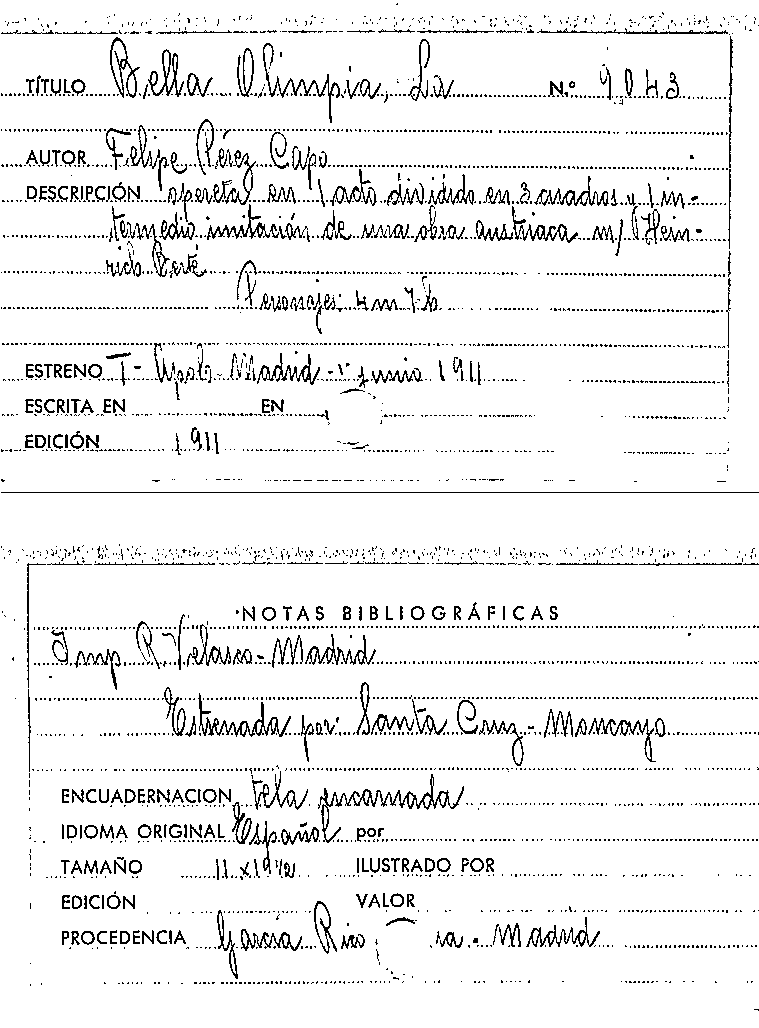 TÍTULO Bella Olimpia, La N.º 9043
AUTOR Felipe Pérez Capo
DESCRIPCIÓN opereta en 1 acto dividido en 3 cuadros y 1 in-
termedio imitación de una obra austriaca m/ Hein-
rich Berté
Personajes: 4 m 7 h
ESTRENO T- Apolo- Madrid - 1º junio 1911
ESCRITA EN EN
EDICIÓN 1911
NOTAS BIBLIOGRÁFICAS
Imp R. Velasco - Madrid
Estrenada por: Santa Cruz - Moncayo
ENCUADERNACION tela encarnada
IDIOMA ORIGINAL Español por
TAMAÑO 11 x 19 1/2 ILUSTRADO POR
EDICIÓN VALOR
PROCEDENCIA García Rico ia - Madrid